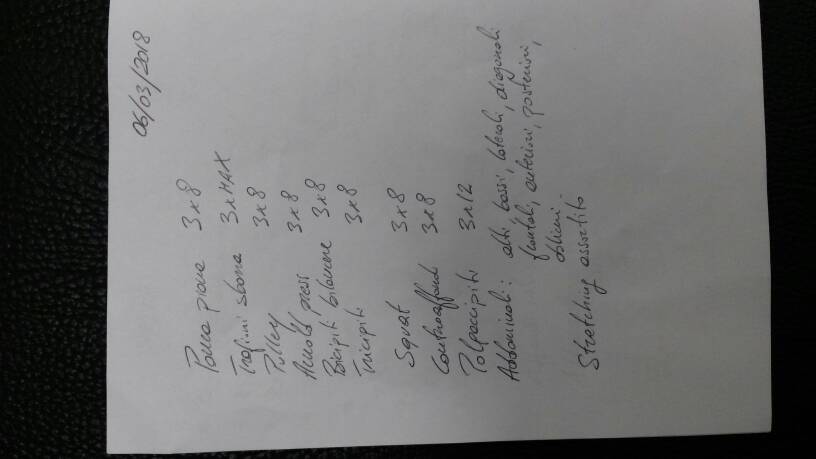 06/03/2018
Panca piana 3x8
Trazioni sbarra 3xMAX
Pulley 3x8
Arnold press 3x8
Bicipiti bilanciere 3x8
Tricipiti 3x8
Squat 3x8
Controaffondi 3x8
Polpaccipiti 3x12
Addominali: alti, bassi, laterali, diagonali
frontali, anteriori, posteriori,
obliqui
Stretching assortito